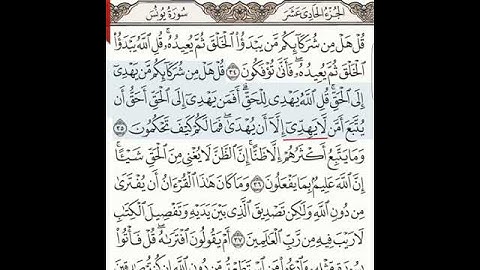 الجزء الحادى عشر سورة يونس
قُلْ هَلْ مِن شُرَكَآئِكُم مَّن يَبْدَؤُاْ الْخَلْقَ ثُمَّ يُعِيدُهُۥ ۚ قُلِ اللَّهُ يَبْدَؤُاْ
الْخَلْقَ ثُمَّ يُعِيدُهُۥ ۖ فَأَنَّىٰ تُؤْفَكُونَ ٣٤ قُلْ هَلْ مِن شُرَكَآئِكُم مَّن يَهْدِىٓ
إِلَى الْحَقِّ ۚ قُلِ اللَّهُ يَهْدِى لِلْحَقِّ ۗ أَفَمَن يَهْدِىٓ إِلَى الْحَقِّ أَحَقُّ أَن
يُتَّبَعَ أَمَّن لَّا يَهِدِّىٓ إِلَّآ أَن يُهْدَىٰ ۖ فَمَا لَكُمْ كَيْفَ تَحْكُمُونَ ٣٥
وَمَا يَتَّبِعُ أَكْثَرُهُمْ إِلَّا ظَنًّا ۚ إِنَّ الظَّنَّ لَا يُغْنِى مِنَ الْحَقِّ شَيْـًٔا ۚ
إِنَّ اللَّهَ عَلِيمٌۢ بِمَا يَفْعَلُونَ ٣٦ وَمَا كَانَ هَٰذَا الْقُرْءَانُ أَن يُفْتَرَىٰ
مِن دُونِ اللَّهِ وَلَٰكِن تَصْدِيقَ الَّذِى بَيْنَ يَدَيْهِ وَتَفْصِيلَ الْكِتَٰبِ
لَا رَيْبَ فِيهِ مِن رَّبِّ الْعَٰلَمِينَ ٣٧ أَمْ يَقُولُونَ افْتَرَىٰهُ ۖ قُلْ فَأْتُواْ
بِسُورَةٍ مِّثْلِهِۦ وَادْعُواْ مَنِ اسْتَطَعْتُم مِّن دُونِ اللَّهِ إِن كُنتُمْ صَٰدِقِينَ